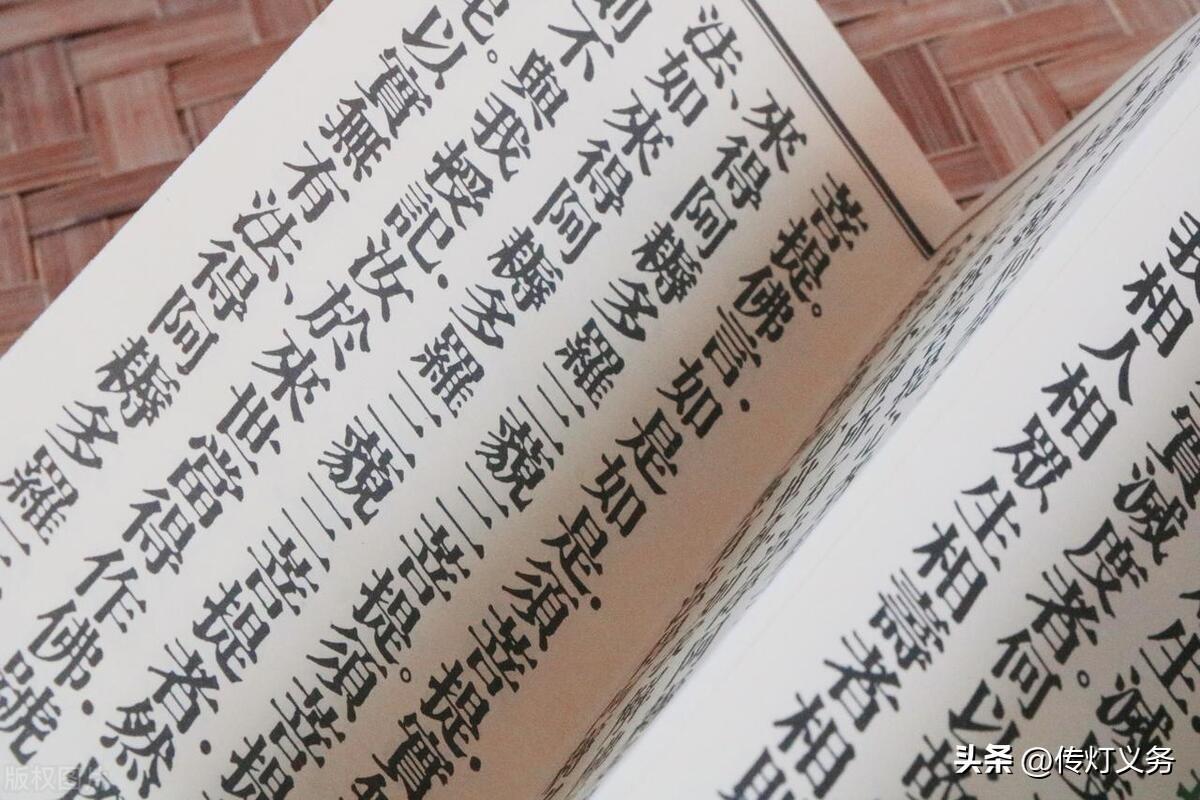 生滅
實滅度者。何以故
我相人相眾生相壽者相
菩提。佛言·如是如是·須菩提·實
來得阿耨多羅三藐三菩提。須菩提
法、如來得阿耨多羅三藐三菩提者·然
則不與我授記·汝於來世當得作佛·號
以實無有法、得阿耨多羅三
头条 @传灯义务